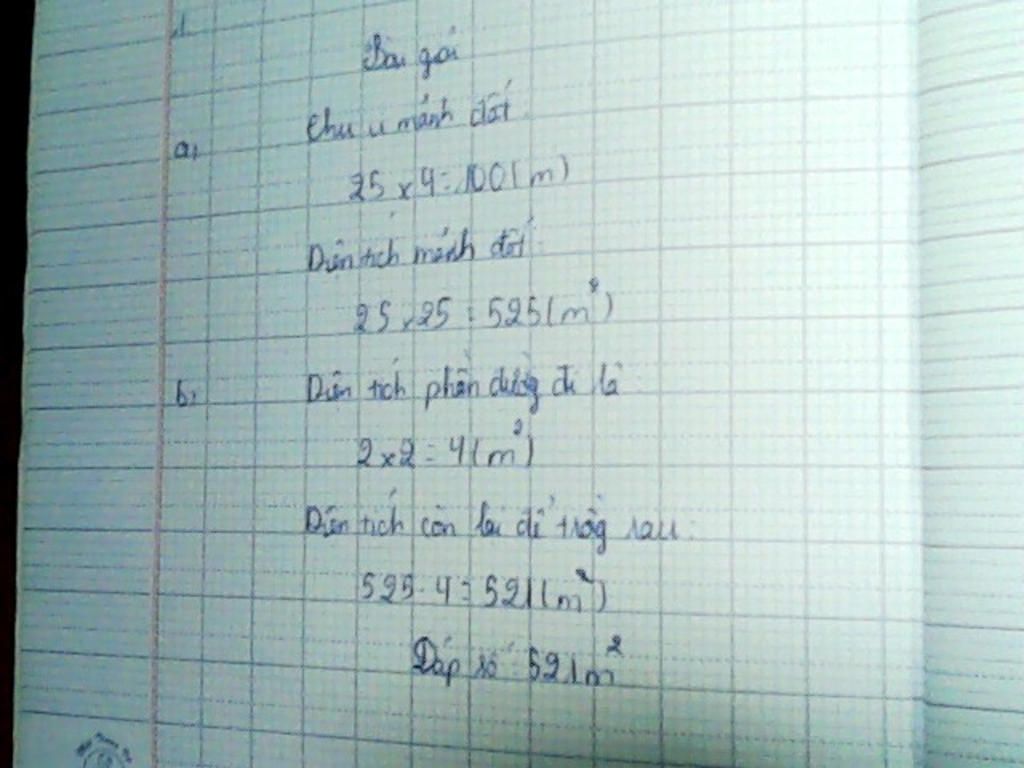 Bài giải
a, Chu vi mảnh đất
25 x 4 = 100 (m)
Diện tích mảnh đất:
25 x 25 = 525 (m²)
b, Diện tích phần đường đi là:
2 x 2 = 4 (m²)
Diện tích còn lại để trồng rau:
525 - 4 = 521 (m²)
Đáp số: 521m²